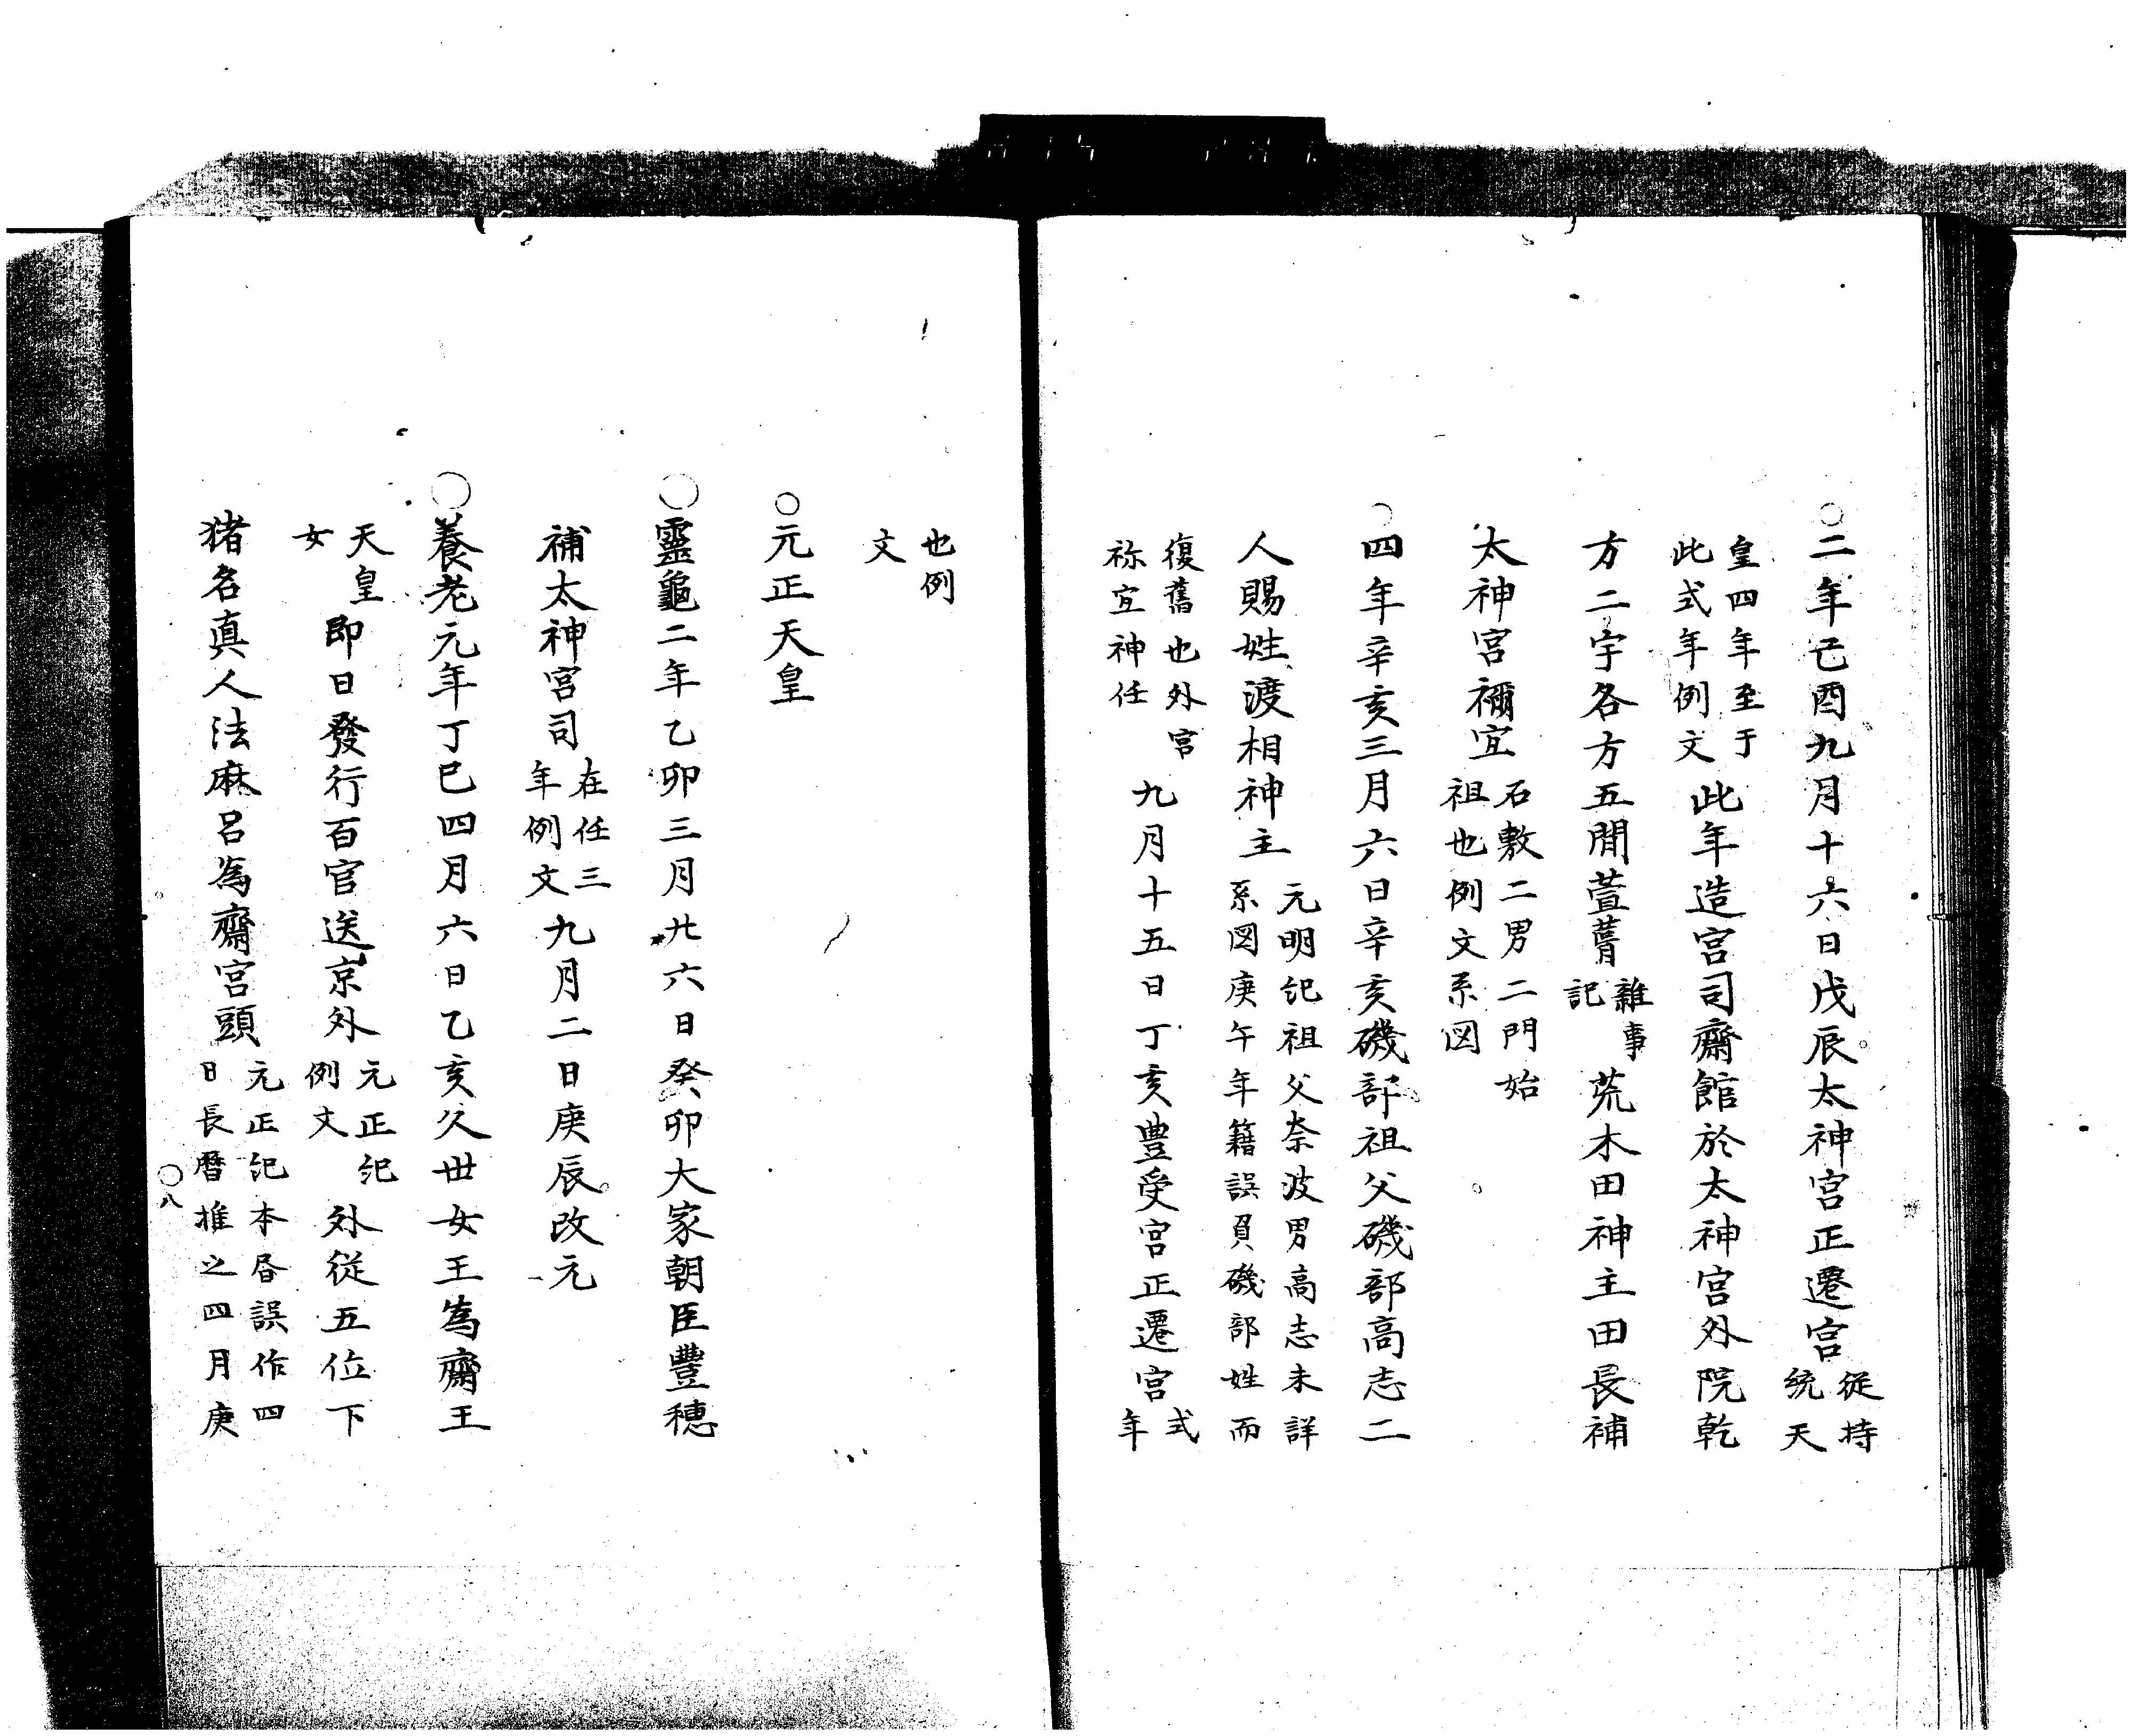 ○二年己酉九月十六日戊辰太神宮正遷宮従持
統天
皇四年至于
此式年例文此年造宮司齋館於太神宮外院乾
方二宇各方五間萱葺雜事
記荒木田神主田長補
太神宮禰宜石敷二男二門始
祖也例文系図
○四年辛亥三月六日辛亥磯部祖父磯部高志二
人賜姓渡相神主元明紀祖父奈波男高志未詳
系図庚午年籍誤負磯部姓而
復舊也外宮
祢宜神任九月十五日丁亥豊受宮正遷宮式
年
也例
文
○元正天皇
○靈龜二年乙卯三月廿六日癸卯大家朝臣豐穂
補太神宮司在任三
年例文九月二日庚辰改元
○養老元年丁巳四月六日乙亥久世女王為齋王
天皇
女即日發行百官送京外元正紀
例文外従五位下
猪名真人法麻呂為齋宮頭元正紀本各誤作四
日長暦推之四月庚
○八